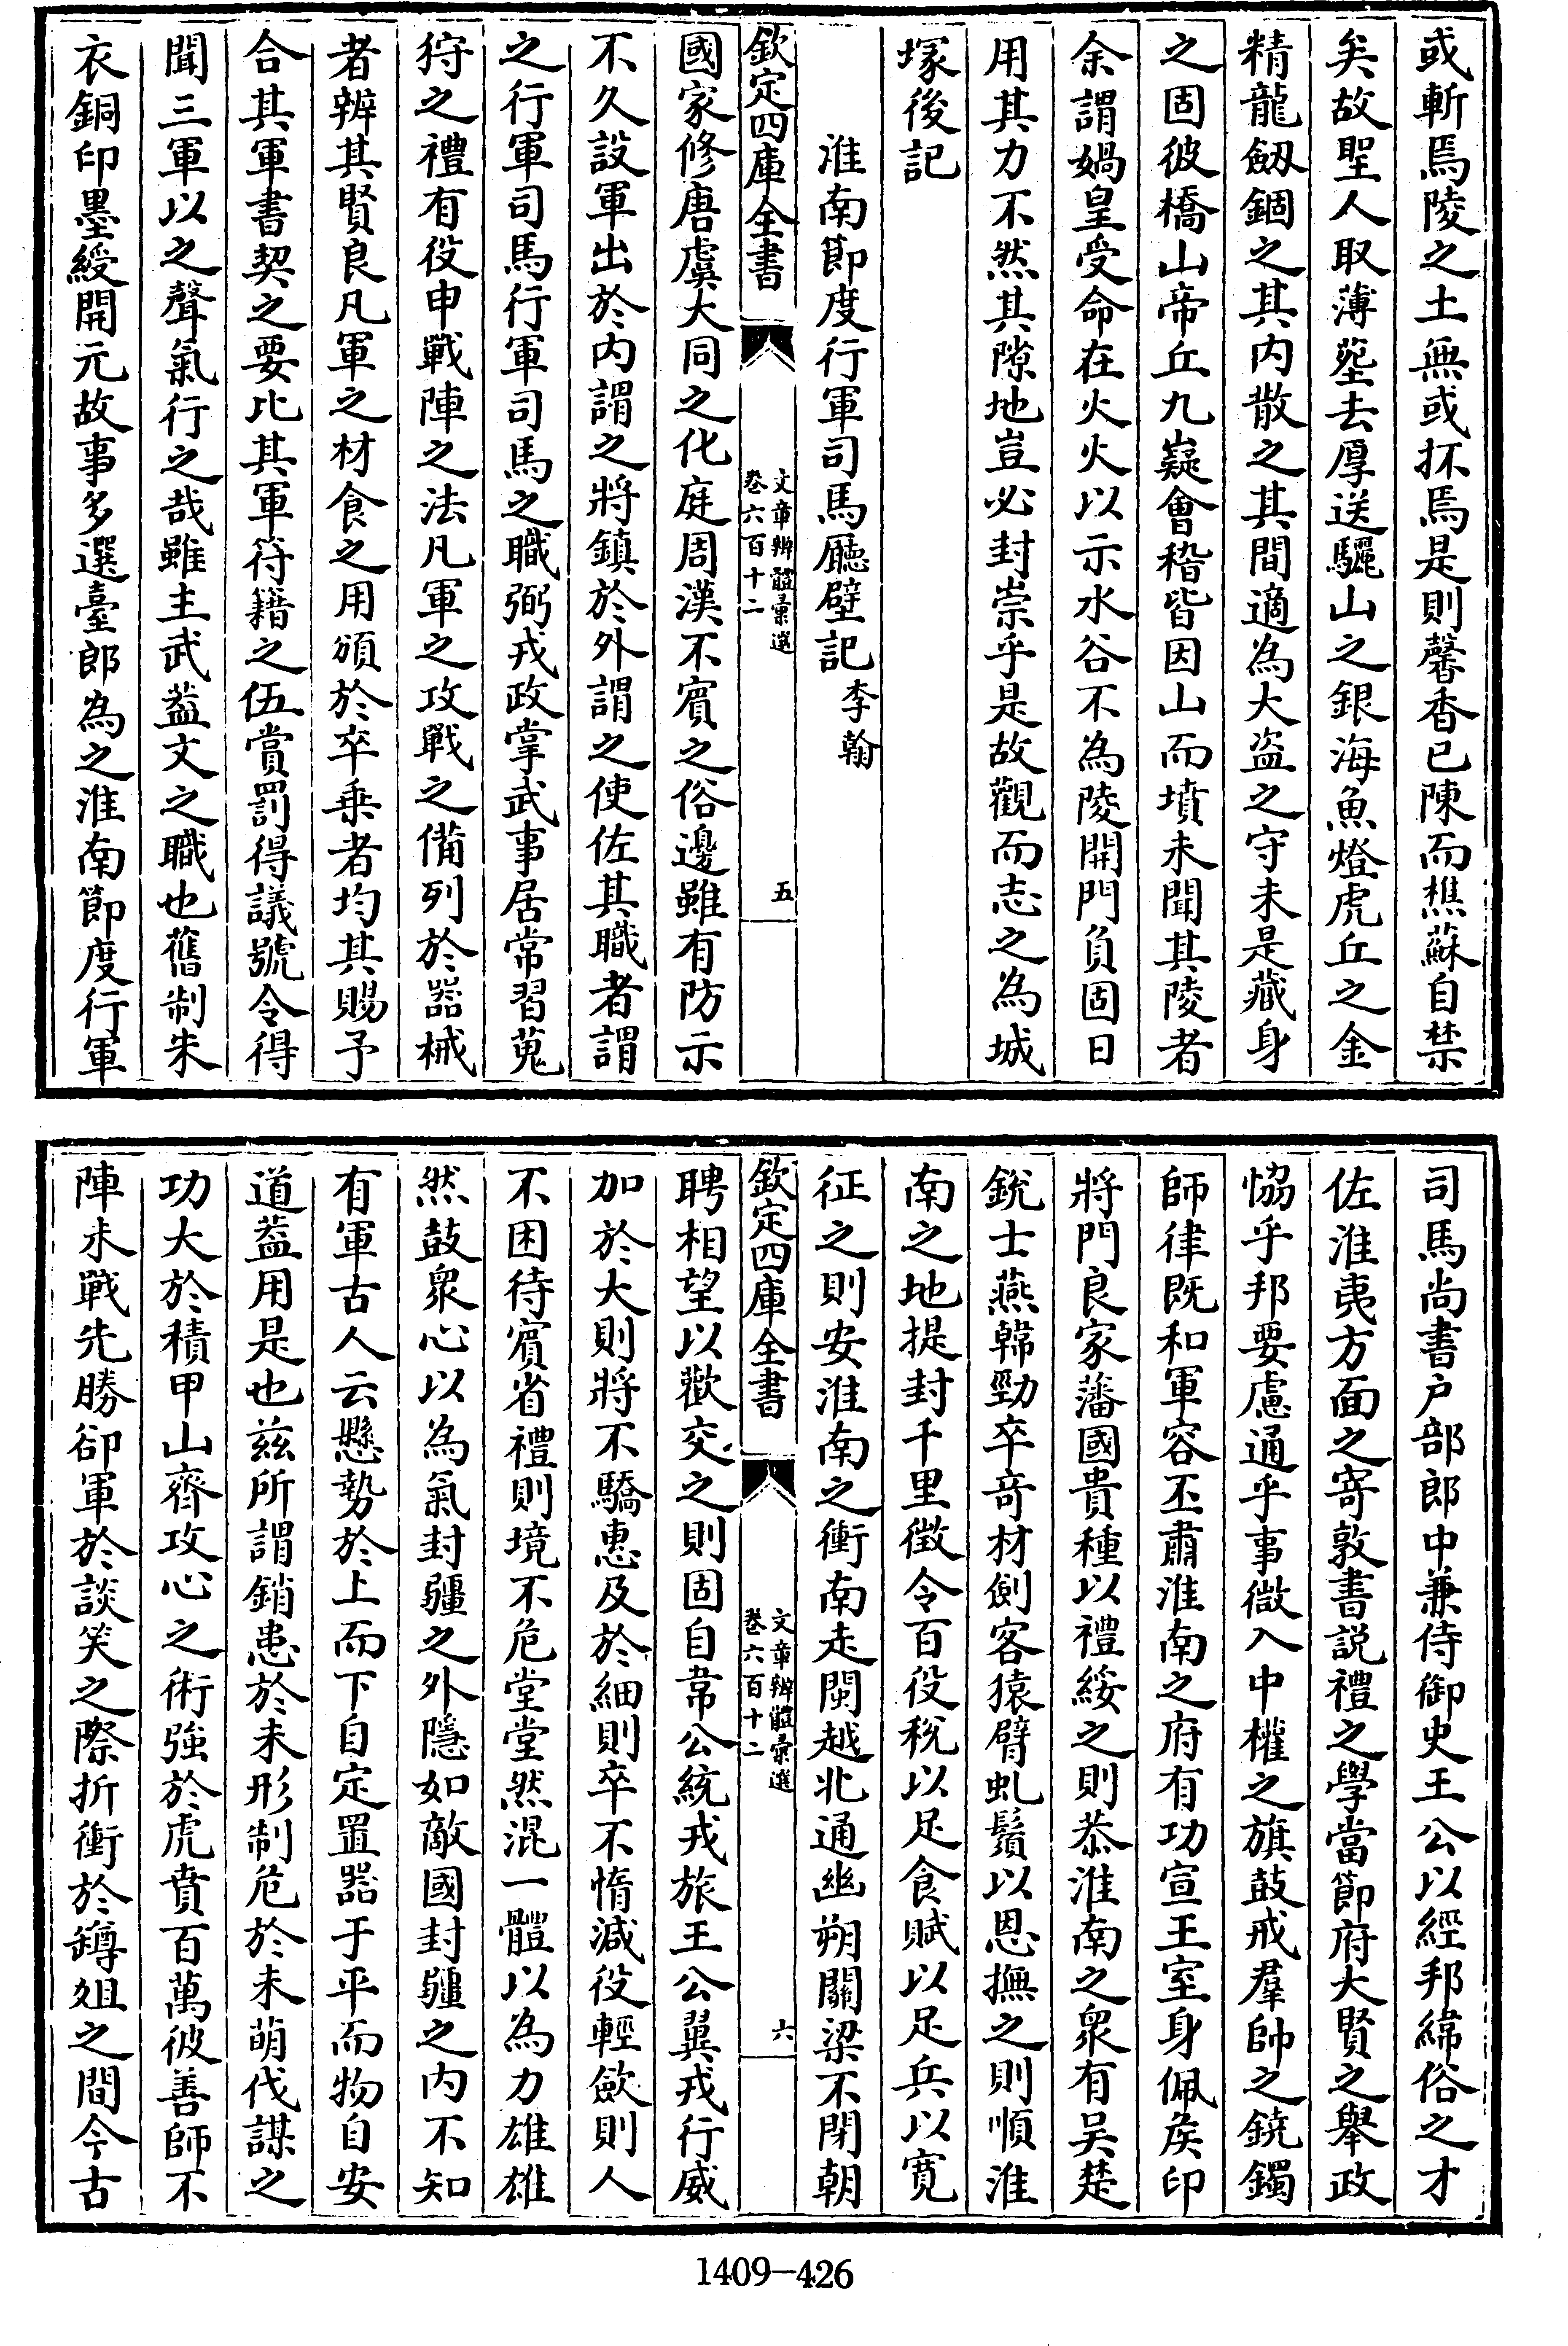 或斬焉陵之土無或抔焉是則馨香已陳而樵蘇自禁
矣故聖人取薄葬去厚送驪山之銀海魚燈虎丘之金
精龍劒錮之其内散之其間適為大盗之守未是藏身
之固彼橋山帝丘九嶷會稽皆因山而墳未聞其陵者
余謂媧皇受命在火火以示水谷不為陵開門負固日
用其力不然其隙地豈必封崇乎是故觀而志之為城
塚後記
淮南節度行軍司馬廳壁記 李翰
欽定四庫全書 文章辨體彙選 卷六百十二 五
國家修唐虞大同之化庭周漢不賓之俗邊雖有防示
不久設軍出於内謂之將鎮於外謂之使佐其職者謂
之行軍司馬行軍司馬之職弼戎政掌武事居常習蒐
狩之禮有役申戰陣之法凡軍之攻戰之備列於器械
者辨其賢良凡軍之材食之用頒於卒乗者均其賜予
合其軍書契之要比其軍符籍之伍賞罰得議號令得
聞三軍以之聲氣行之哉雖主武葢文之職也舊制朱
衣銅印墨綬開元故事多選臺郎為之淮南節度行軍
司馬尚書户部郎中兼侍御史王公以經邦緯俗之才
佐淮夷方面之寄敦書説禮之學當節府大賢之舉政
恊乎邦要慮通乎事微入中權之旗鼓戒羣帥之鐃鐲
師律既和軍容丕肅淮南之府有功宣王室身佩侯印
將門良家藩國貴種以禮綏之則恭淮南之衆有吴楚
鋭士燕韓勁卒竒材劍客猿臂虬鬚以恩撫之則順淮
南之地提封千里徴令百役税以足食賦以足兵以寛
征之則安淮南之衝南走閩越北通幽朔關梁不閉朝
欽定四庫全書 文章辨體彙選 卷六百十二 六
聘相望以歡交之則固自常公統戎旅王公翼戎行威
加於大則將不驕惠及於細則卒不惰減役輕斂則人
不困待賓省禮則境不危堂堂然混一體以為力雄雄
然鼓衆心以為氣封疆之外隱如敵國封疆之内不知
有軍古人云懸勢於上而下自定置器于平而物自安
道葢用是也兹所謂銷患於未形制危於未萌伐謀之
功大於積甲山齊攻心之術強於虎賁百萬彼善師不
陣未戰先勝卻軍於談笑之際折衝於鐏俎之間今古
1409-426